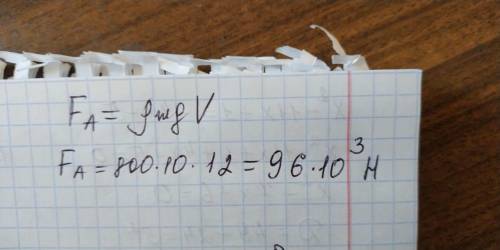 F_A = ρжgV
F_A = 800·10·12 = 96·10³ Н